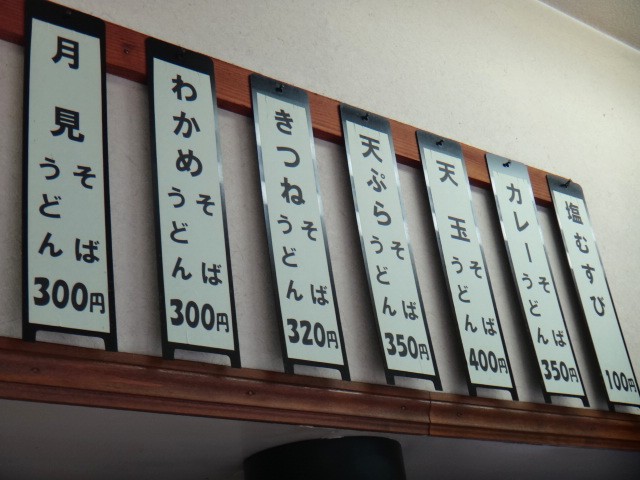 月見そばうどん300円
わかめそばうどん300円
きつねそばうどん320円
天ぷらそばうどん350円
天玉そばうどん400円
カレーそばうどん350円
塩むすび100円